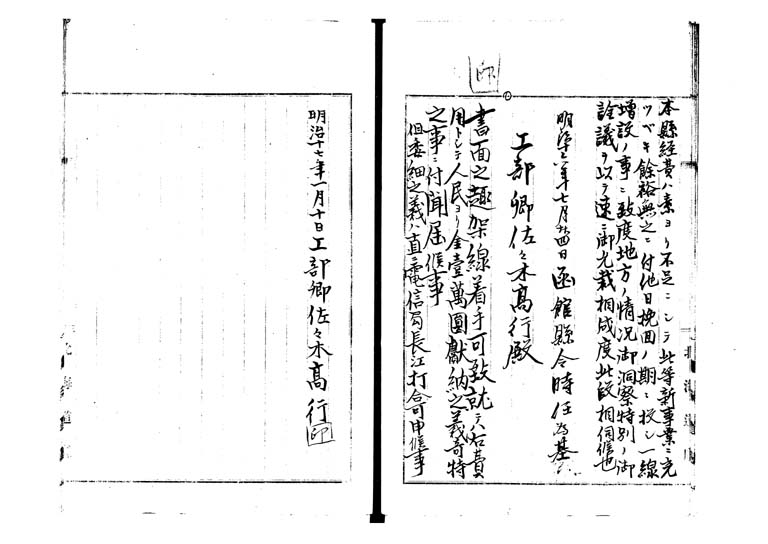 本縣經費ハ素ヨリ不足ニシテ此等新事業ニ充
ツベキ餘裕無之ニ付他日挽回ノ期ニ投シ一線
増設ノ事ニ致度地方ノ情況御洞察特別ノ御
詮議ヲ以テ速ニ御允裁相成度此段相伺候也
明治十六年七月廿四日函館縣令時任為基
工部卿佐々木高行殿
印
書面之趣架線着手可致就テハ右費
用トシテ人民ヨリ金壹萬圓獻納之義奇特
之事ニ付聞届候事
但委細之義ハ直ニ電信局長江打合可申候事
明治十七年一月十日工部卿佐々木高行印